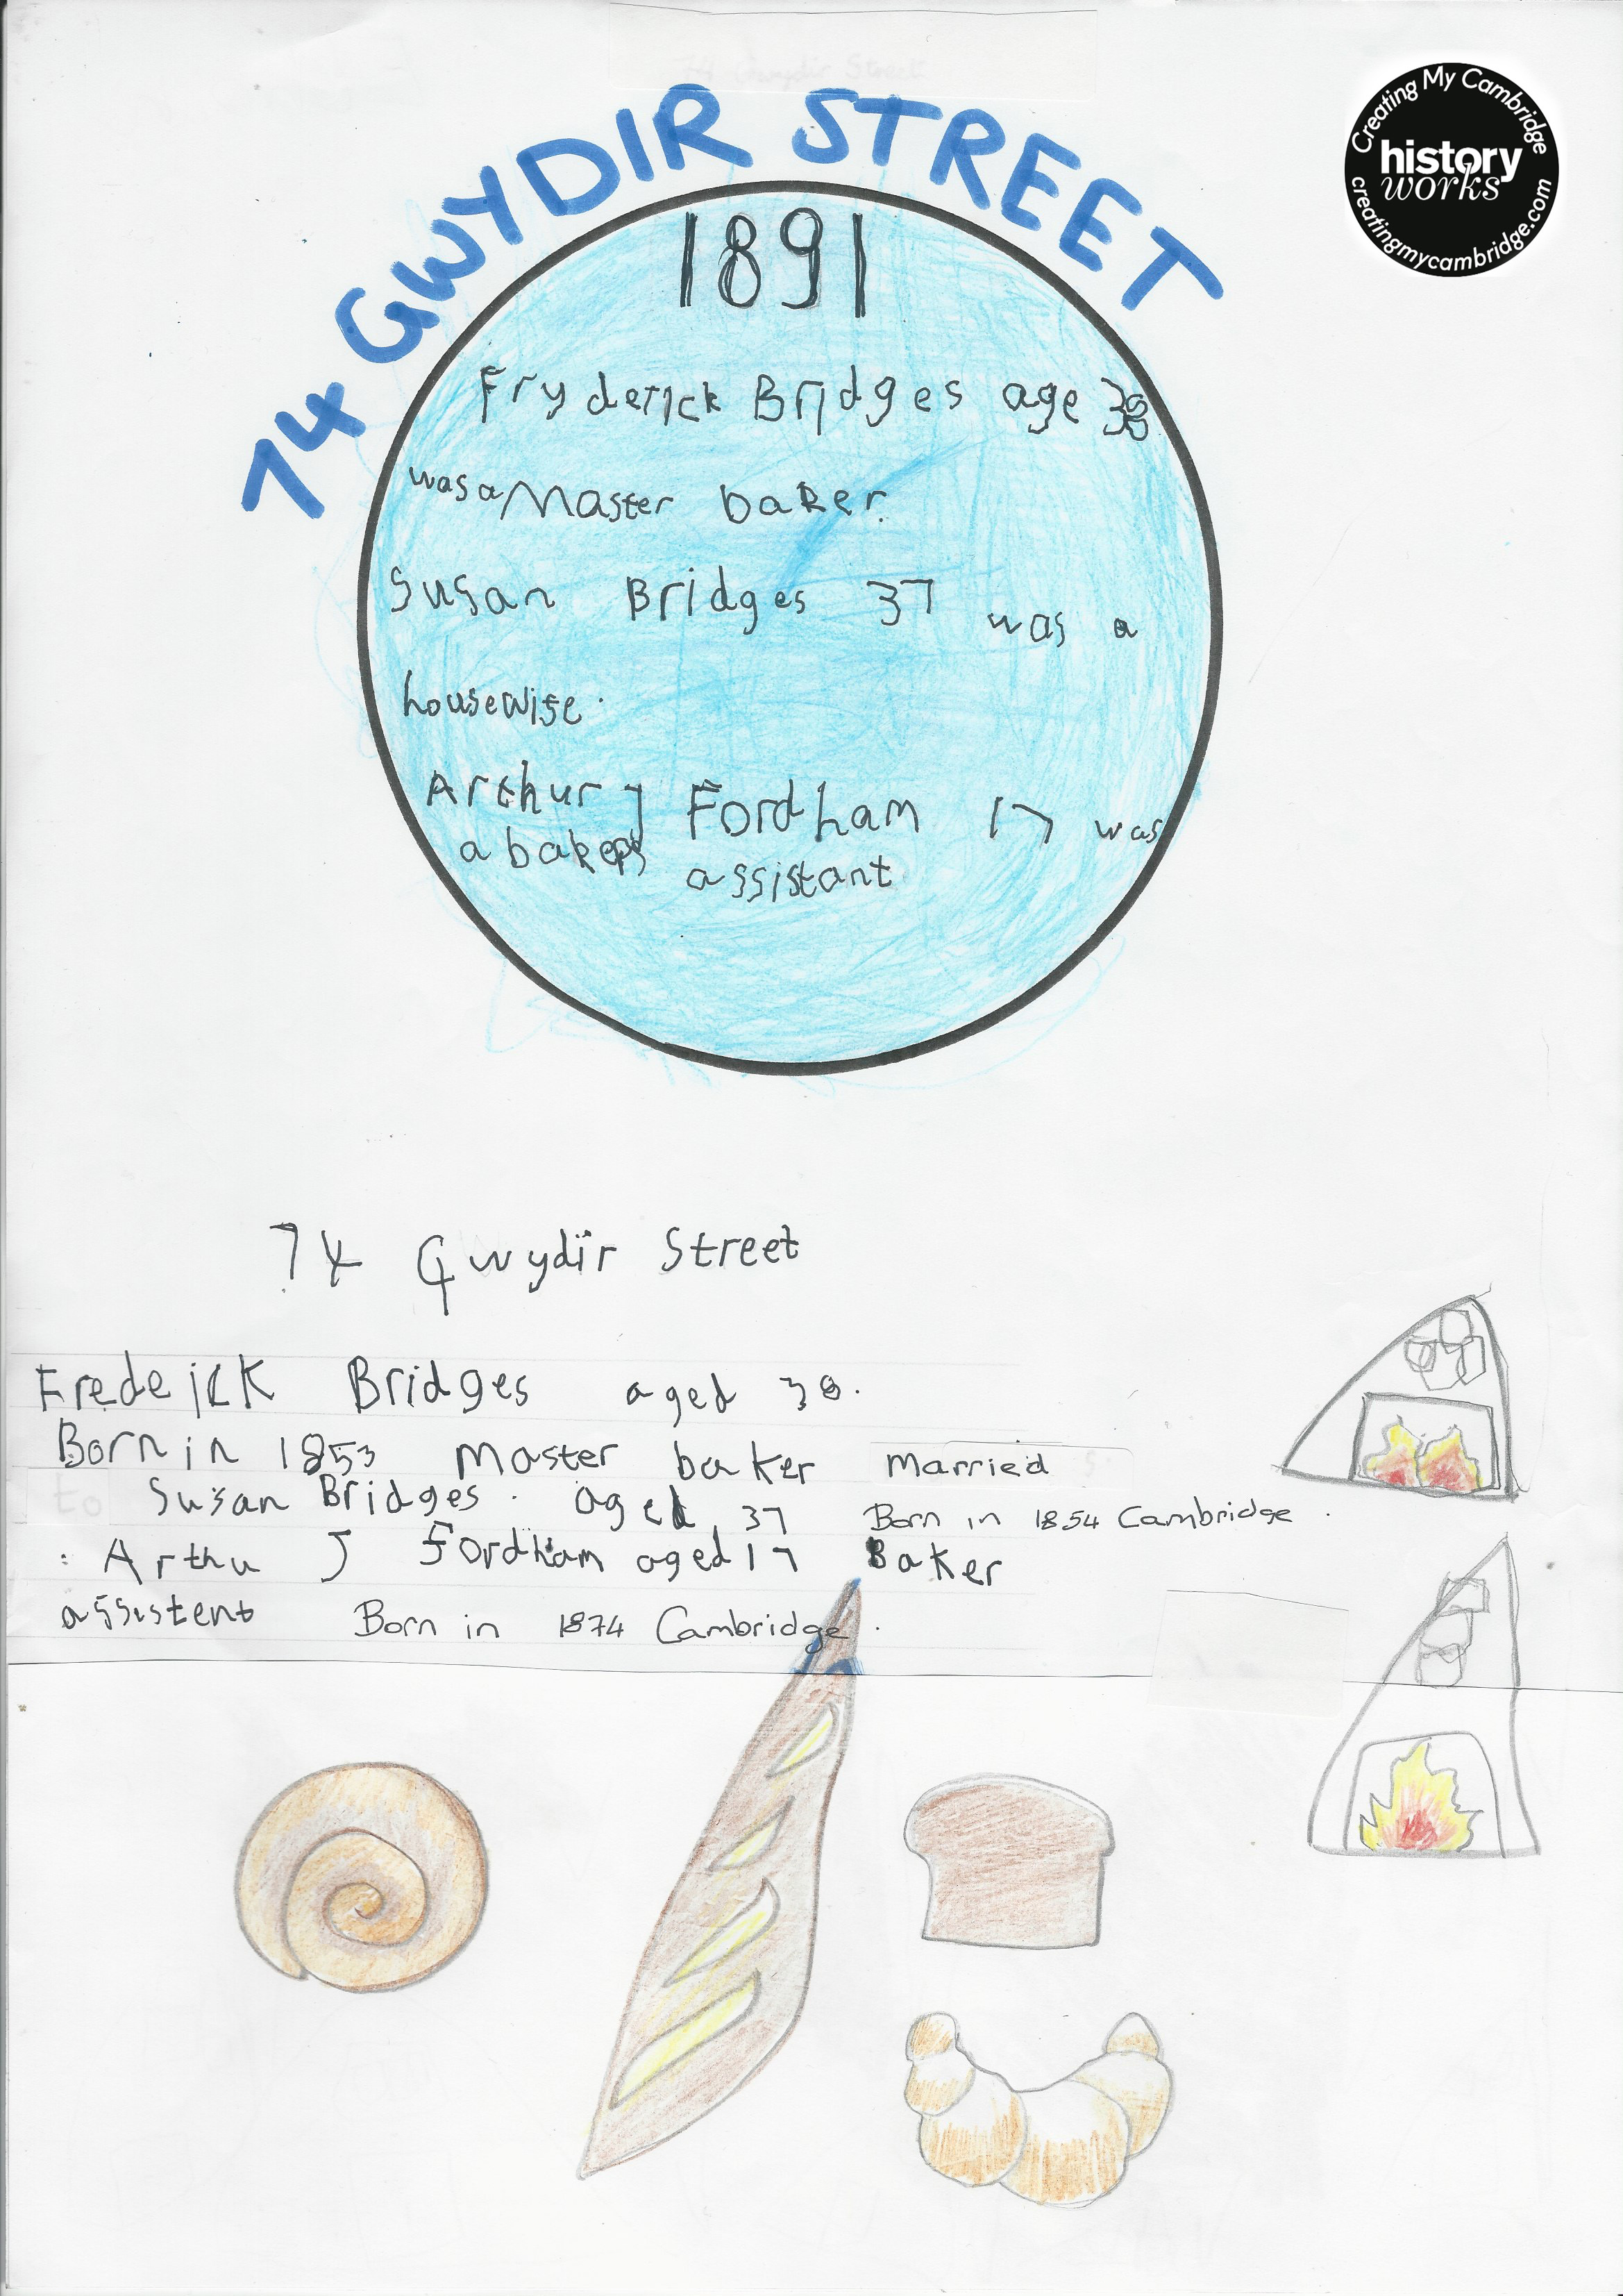 74 Gwydir Street
Creating My Cambridge
history
works
creatingmycambridge.com
74 GWYDIR STREET
1891
Fryderick Bridges age 38
was a Master baker.
Susan Bridges 37 was a
housewife.
Arthur J Fordham 17 was
a bakers assistant
74 Gwydir Street
Frederick Bridges aged 38.
Born in 1853 Master baker Married
to Susan Bridges. aged 37 Born in 1854 Cambridge.
Arthu J Fordham aged 17 Baker
assistent Born in 1874 Cambridge.